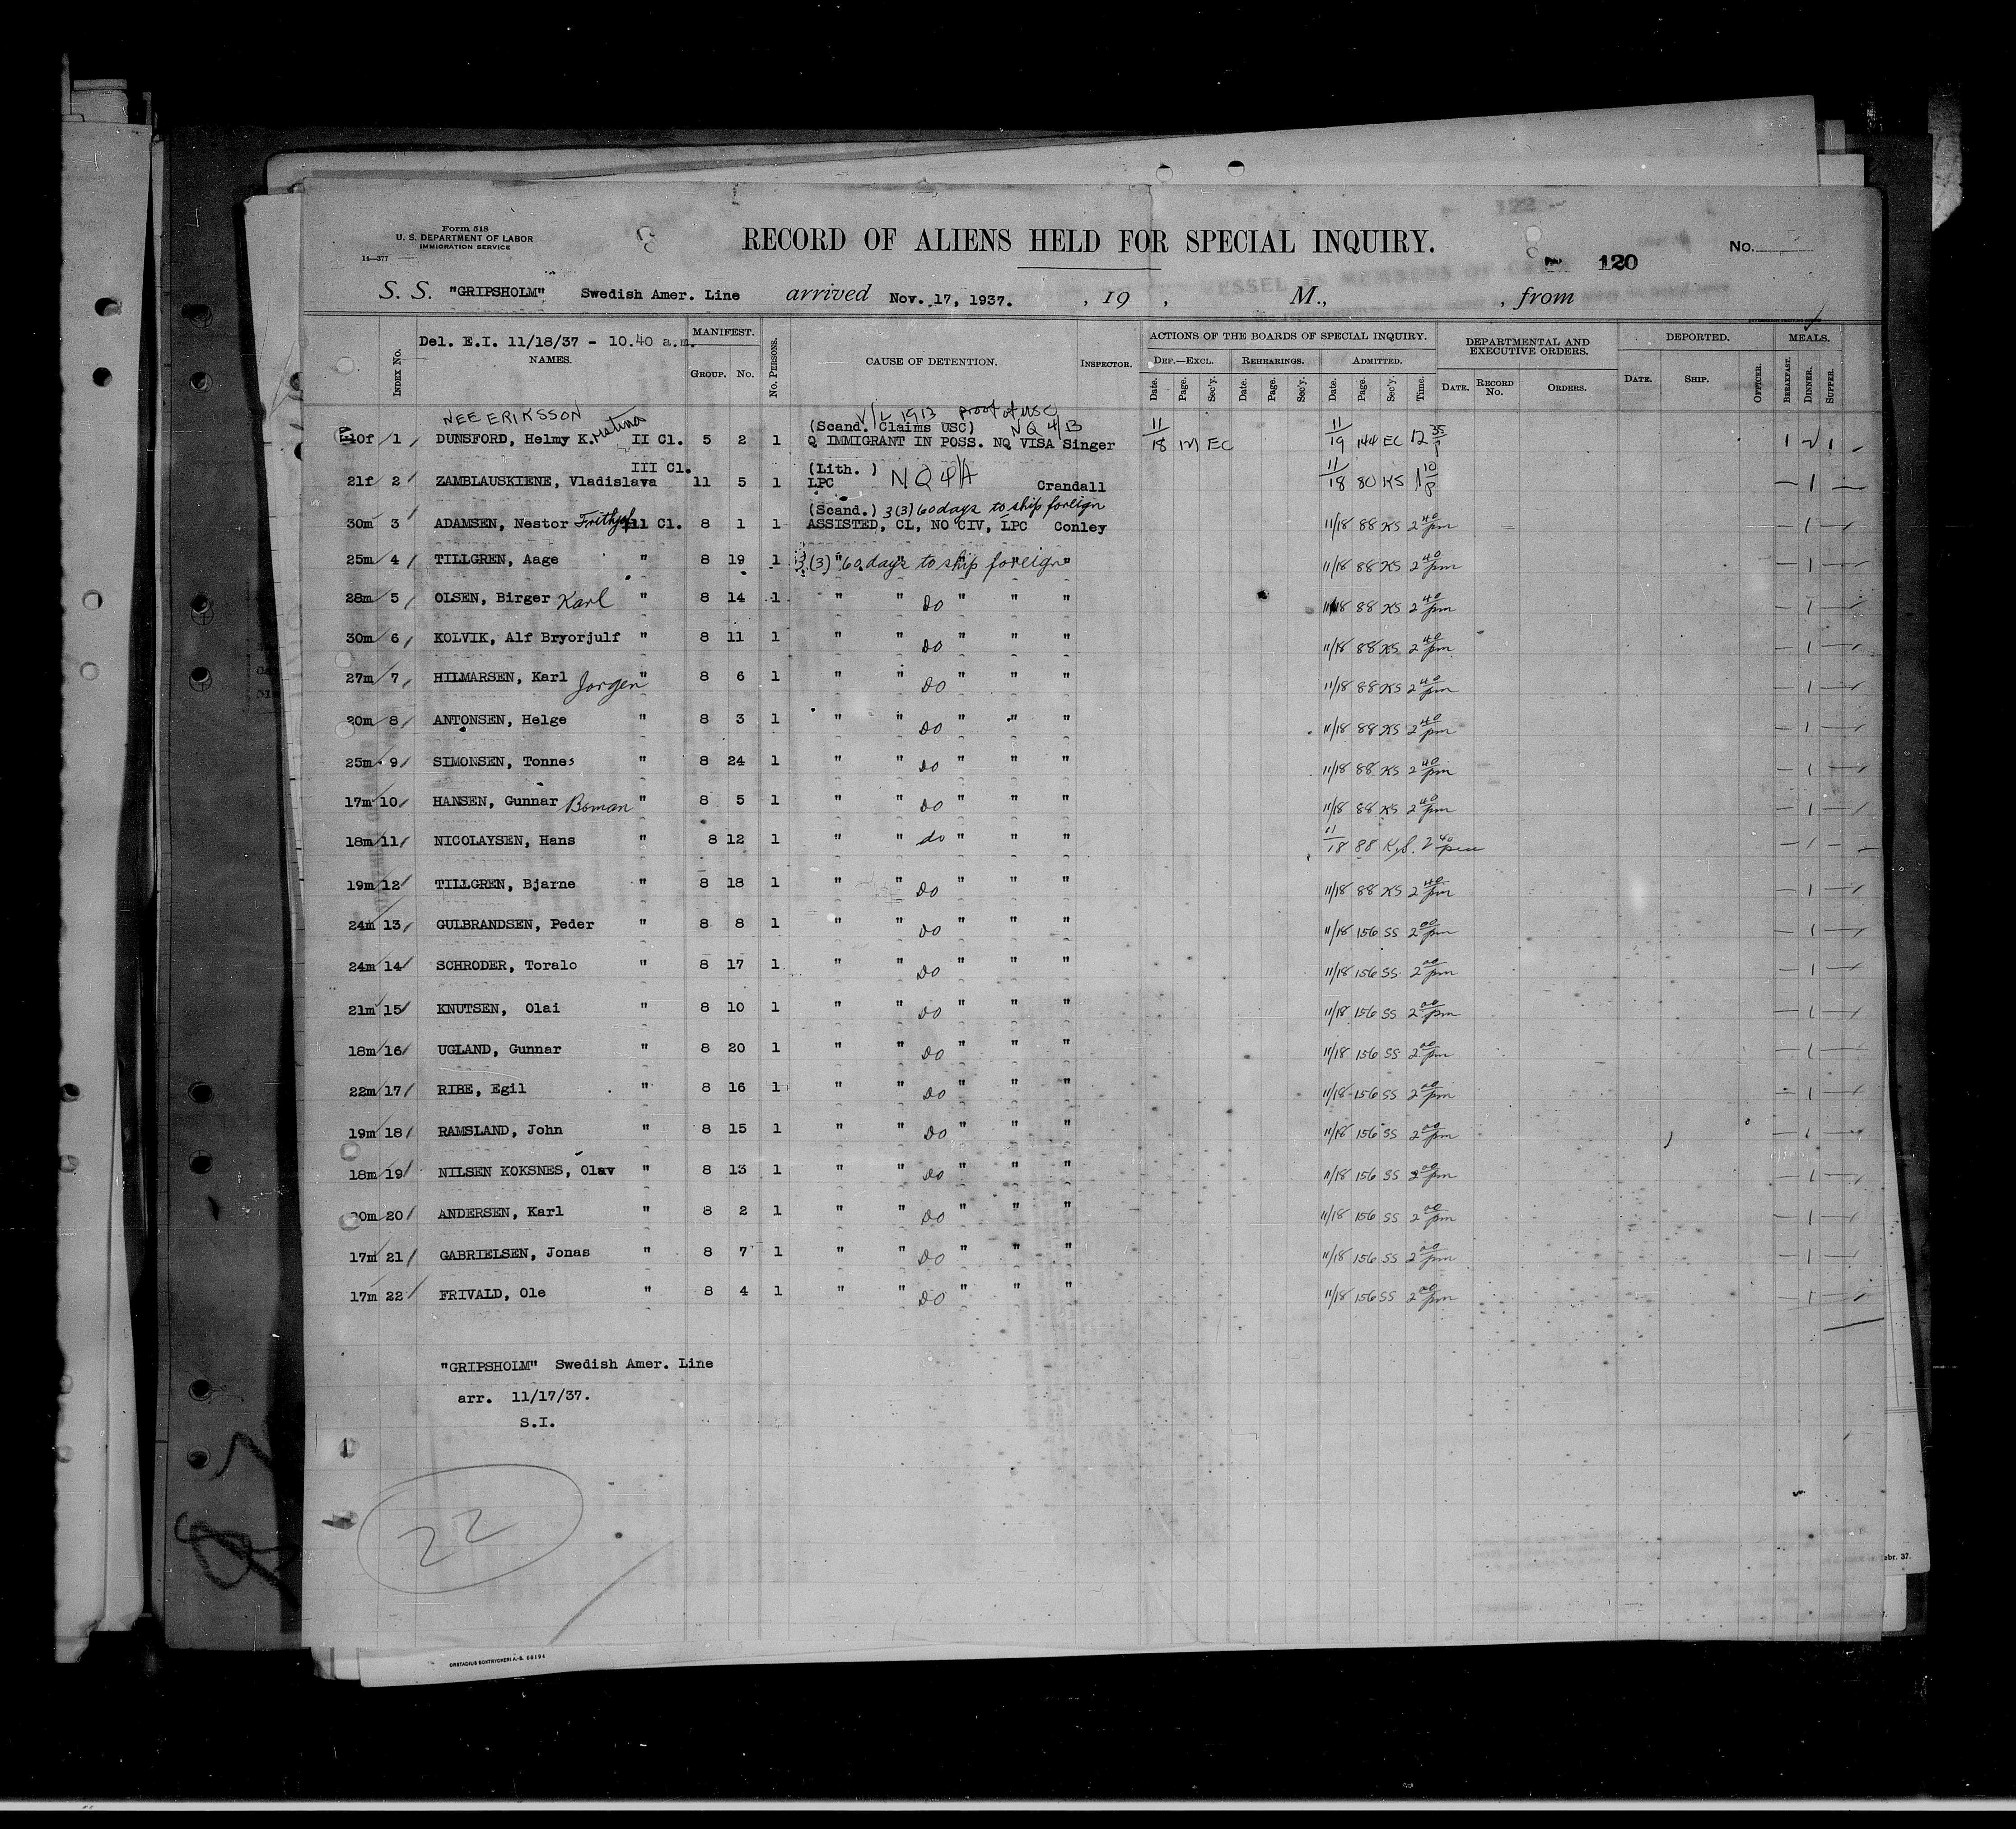 Form 518
U. S. DEPARTMENT OF LABOR
IMMIGRATION SERVICE
14—377
RECORD OF ALIENS HELD FOR SPECIAL INQUIRY.
No.
120
S. S. "GRIPSHOLM" Swedish Amer. Line arrived Nov. 17, 1937. , 19 , M., , from
Del. E.I. 11/18/37 - 10.40 a.m.
INDEX No. NAMES. MANIFEST. GROUP. No. No. PERSONS. CAUSE OF DETENTION. INSPECTOR. ACTIONS OF THE BOARDS OF SPECIAL INQUIRY. DEF.—EXCL. REHEARINGS. ADMITTED. DEPARTMENTAL AND EXECUTIVE ORDERS. DEPORTED. MEALS.
Date. Page. Sec'y. Date. Page. Sec'y. Date. Page. Sec'y. Time. DATE. RECORD No. ORDERS. DATE. SHIP. OFFICER. BREAKFAST. DINNER. SUPPER.
NEE ERIKSSON V/L 1913 proof of USC
(Scand. Claims USC) NQ 4/B
40f 1 DUNSFORD, Helmy K. Matina II Cl. 5 2 1 Q IMMIGRANT IN POSS. NQ VISA Singer 11/18 EC 11/19 144 EC 12 35/P
III Cl. (Lith. )
21f 2 ZAMBLAUSKIENE, Vladislava 11 5 1 LPC NQ 4/A Crandall 11/18 80 KS 1 10/P
(Scand.) 3(3) 60 days to ship foreign
30m 3 ADAMSEN, Nestor Frithjof III Cl. 8 1 1 ASSISTED, CL, NO CIV, LPC Conley 11/18 88 KS 2 40/pm
25m 4 TILLGREN, Aage " 8 19 1 3(3) 60 days to ship foreign " 11/18 88 KS 2 40/pm
28m 5 OLSEN, Birger Karl " 8 14 1 " " Do " " " 11/18 88 KS 2 40/pm
30m 6 KOLVIK, Alf Bryorjulf " 8 11 1 " " Do " " " 11/18 88 KS 2 40/pm
27m 7 HILMARSEN, Karl Jorgen " 8 6 1 " " Do " " " 11/18 88 KS 2 40/pm
20m 8 ANTONSEN, Helge " 8 3 1 " " Do " " " 11/18 88 KS 2 40/pm
25m 9 SIMONSEN, Tonnes " 8 24 1 " " Do " " " 11/18 88 KS 2 40/pm
17m 10 HANSEN, Gunnar Boman " 8 5 1 " " Do " " " 11/18 88 KS 2 40/pm
18m 11 NICOLAYSEN, Hans " 8 12 1 " " do " " " 11/18 88 K.S. 2 40/pm
19m 12 TILLGREN, Bjarne " 8 18 1 " " Do " " " 11/18 88 KS 2 40/pm
24m 13 GULBRANDSEN, Peder " 8 8 1 " " Do " " " 11/18 156 SS 2 00/pm
24m 14 SCHRODER, Toralo " 8 17 1 " " Do " " " 11/18 156 SS 2 00/pm
21m 15 KNUTSEN, Olai " 8 10 1 " " Do " " " 11/18 156 SS 2 00/pm
18m 16 UGLAND, Gunnar " 8 20 1 " " Do " " " 11/18 156 SS 2 00/pm
22m 17 RIBE, Egil " 8 16 1 " " Do " " " 11/18 156 SS 2 00/pm
19m 18 RAMSLAND, John " 8 15 1 " " Do " " " 11/18 156 SS 2 00/pm
18m 19 NILSEN KOKSNES, Olav " 8 13 1 " " Do " " " 11/18 156 SS 2 00/pm
20m 20 ANDERSEN, Karl " 8 2 1 " " Do " " " 11/18 156 SS 2 00/pm
17m 21 GABRIELSEN, Jonas " 8 7 1 " " Do " " " 11/18 156 SS 2 00/pm
17m 22 FRIVALD, Ole " 8 4 1 " " Do " " " 11/18 156 SS 2 00/pm
"GRIPSHOLM" Swedish Amer. Line
arr. 11/17/37.
S.I.
22